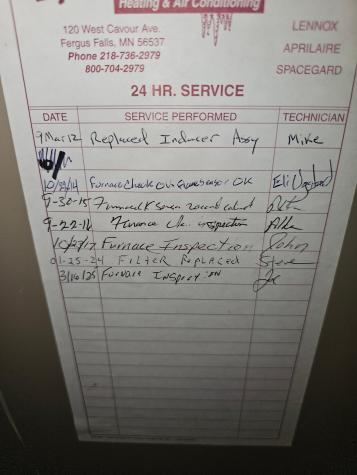 Heating & Air Conditioning
120 West Cavour Ave.
Fergus Falls, MN 56537
Phone 218-736-2979
800-704-2979
LENNOX
APRILAIRE
SPACEGARD
24 HR. SERVICE
DATE SERVICE PERFORMED TECHNICIAN
9 Mar 12 Replaced Inducer Assy Mike
10/22/14 Furnace Check OK Eli
9-30-15
9-22-16 Furnace Ck. inspection
10/27/17 Furnace Inspection John
01-25-24 FILTER REPLACED Steve
3/16/25 Furnace Inspection Joe